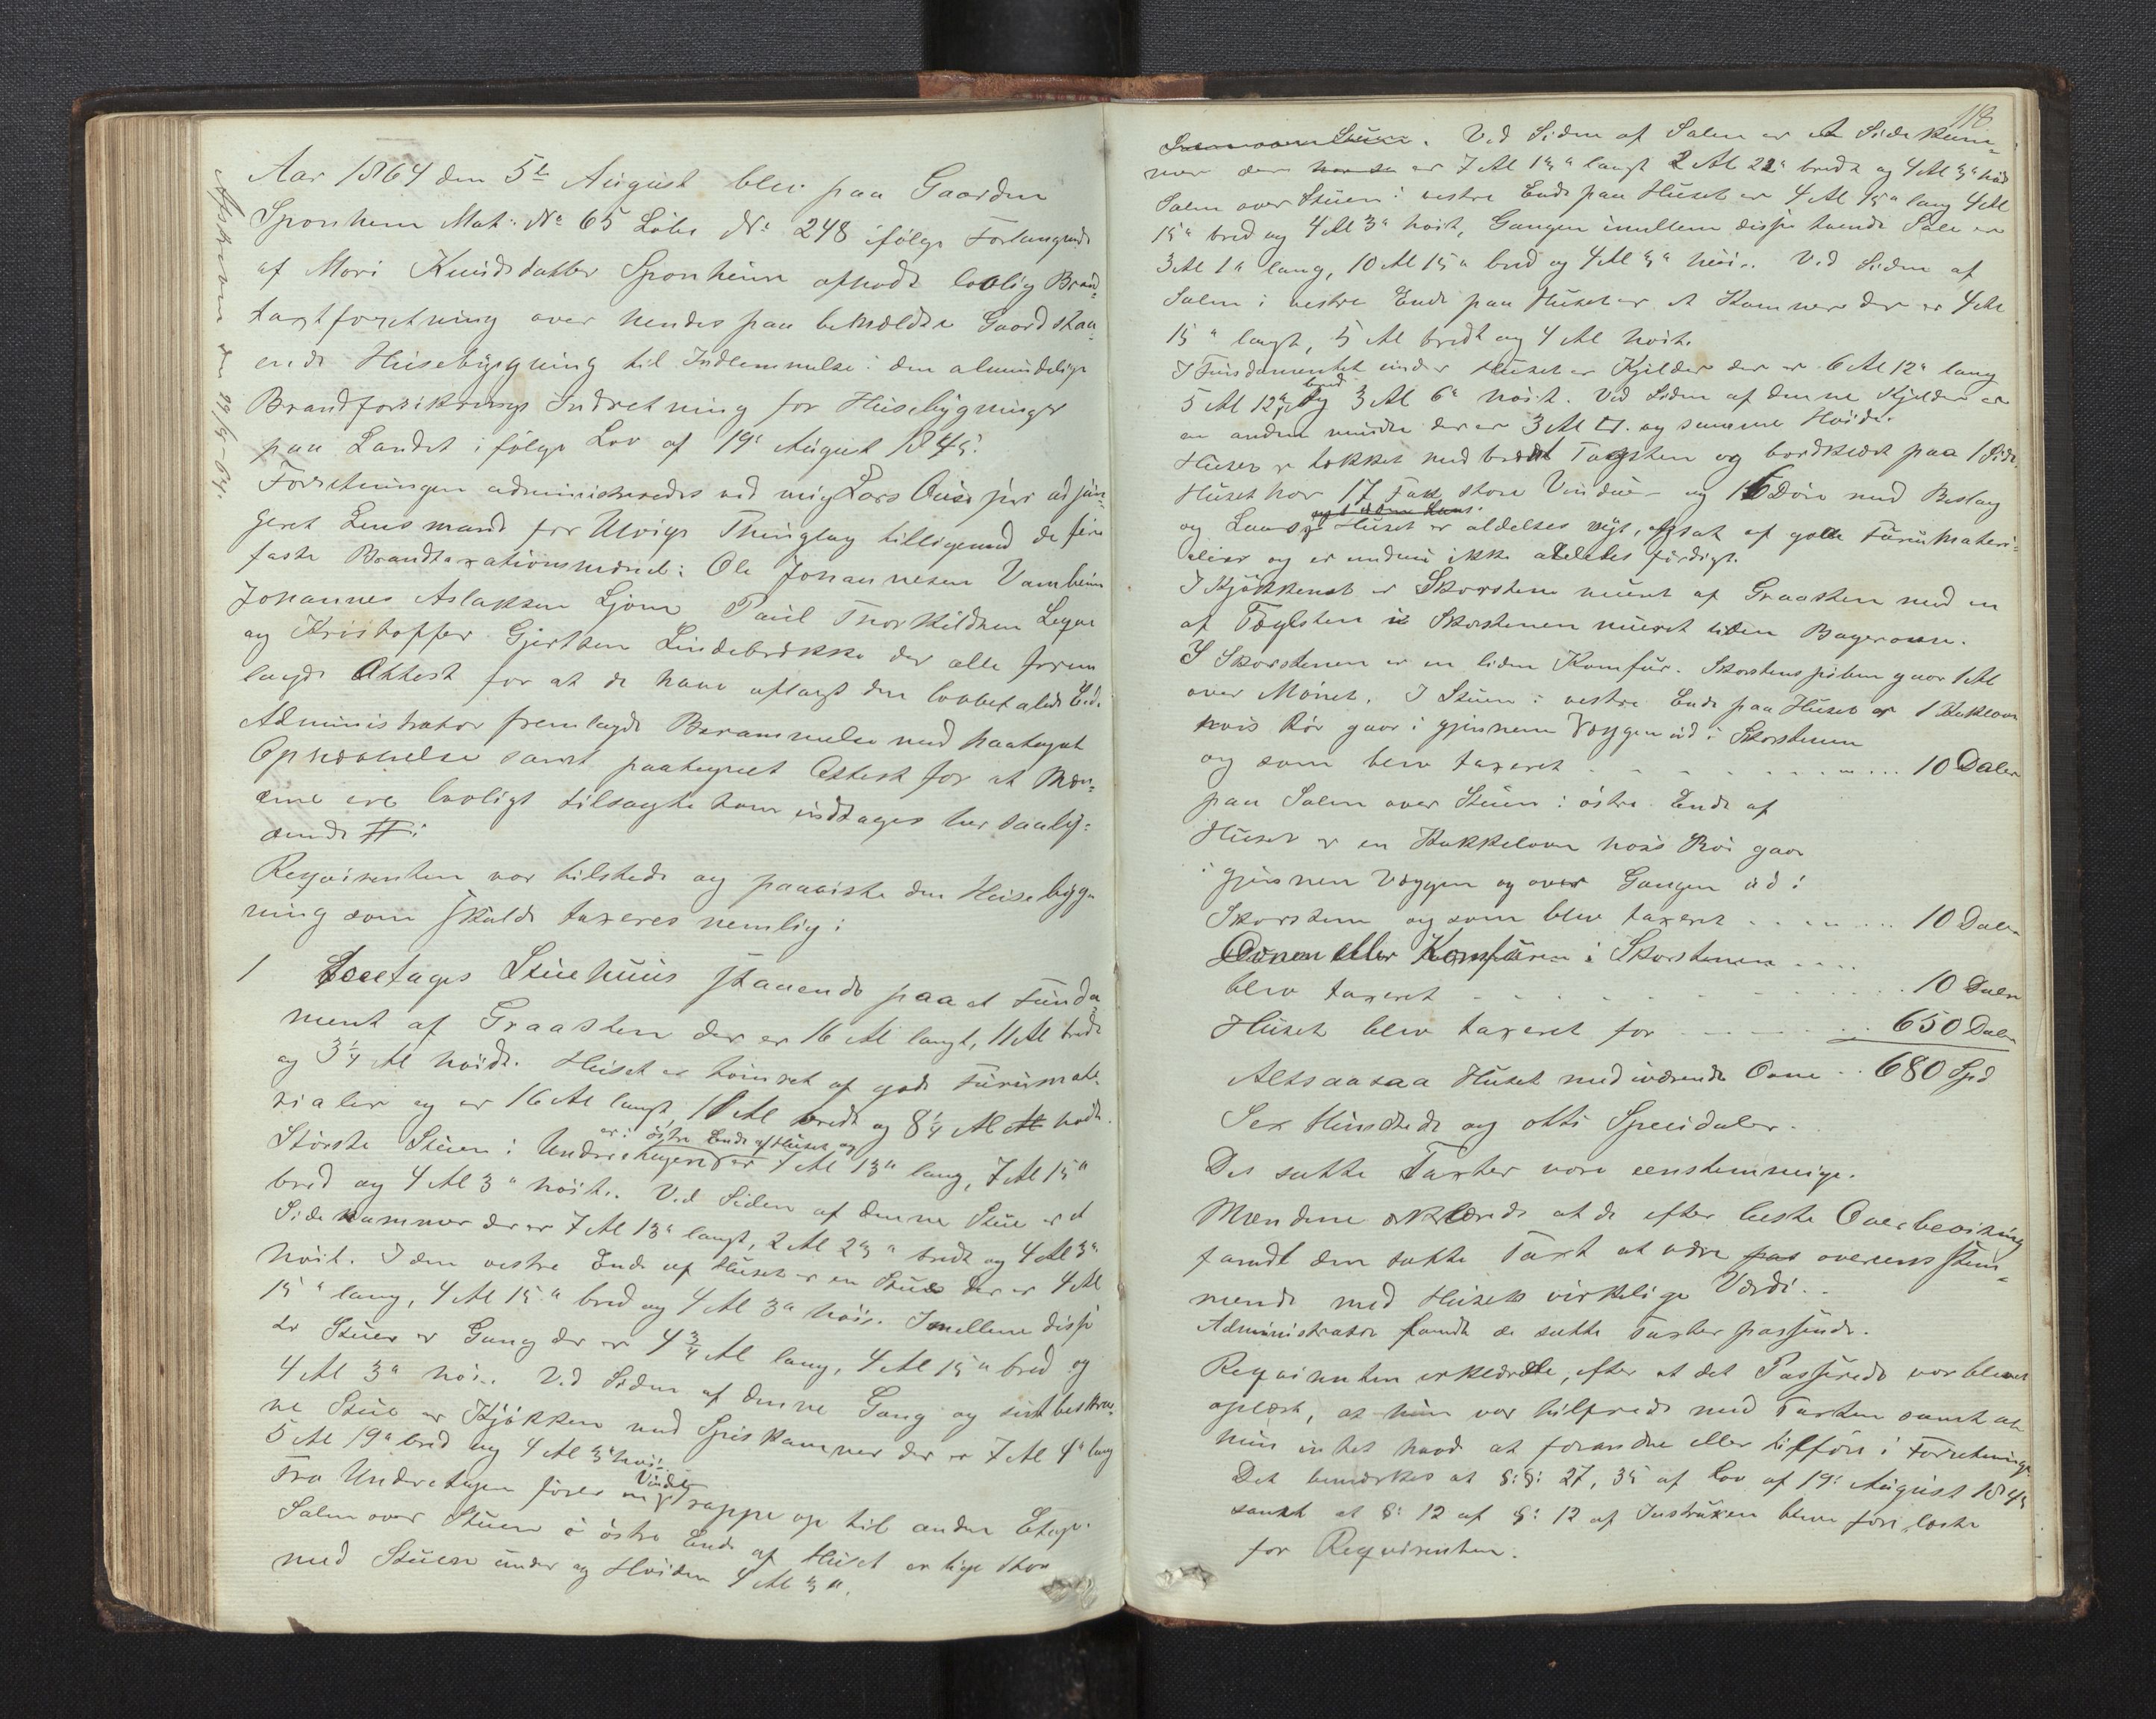 Afskreven den 29/8-64.
Aar 1864 den 5te August blev paa Gaarden
Sponheim Mat: No 65 Löbe No 248 ifölge Forlangende
af Mari Knudsdatter Sponheim afholdt lovlig Brand-
taxtforretning over hendes paa bemældte Gaard staa-
ende Huusebygning til Indlemmelse i den almindelige
Brandforsikrings Indretning for Huusebygninger
paa Landet ifölge Lov af 19: August 1845.
Forretningen administreredes ved mig Lars Buse jur adjun-
geret Lensmand for Ulvigs Thinglag tilligemed de fire
faste Brandtaxationsmænd: Ole Johannesen Vambheim
Johannes Aslaksen Ljone Paul Thorkildsen Legre
og Kristoffer Gjertsen Lindebrække der alle frem
lagde Attest for at de have aflagt den lovbefalede Eed.
Administrator fremlagde Berammelse med paategnet
Opnævnelse samt paategnet Attest for at Mæn-
dene ere lovligt tilsagte som indtages her saaly-
dende #:
Reqvirenten var tilstede og paaviste den Huusebyg-
ning som skulde taxeres nemlig:
1 Toeetages Stuehuus staaende paa et Funda-
ment af Graasten der er 16 Al langt, 11 Al bredt
og 3 1/4 Al höidt. Huset er tömret af gode Furumate-
rialer og er 16 Al langt, 11 Al bredt og 8 1/4 Al höit.
er i östre Ende af Huset og
Störste Stuen i Underetagen er 7 Al 13" lang, 7 Al 15"
bred og 4 Al 3" höit. Ved Siden af denne Stue er et
Sidekammer der er 7 Al 13" langt, 2 Al 23" bredt og 4 Al 3"
höit. I den vestre Ende af Huset er en Stue der er 4 Al
15" lang, 4 Al 15" bred og 4 Al 3" höi. Imellem disse
to Stuer er Gang der er 4 3/4 Al lang, 4 Al 15" bred og
4 Al 3" höi. Ved Siden af denne Gang og sidstbeskrev-
ne Stue er Kjökken med Spiskammer der er 7 Al 4" lang
5 Al 19" bred og 4 Al 3" höi.
Vindel
Fra Underetagen förer en Trappe op til anden Etage.
Salen over Stuen i östre Ende af Huset er lige stor
med Stuen under og Höiden 4 Al 3".
118
Stuen. Ved Siden af Salen er et Sidekam-
mer der er 7 Al 13" langt 2 Al 22" bredt og 4 Al 3" höit
Salen over Stuen i vestre Ende paa Huset er 4 Al 15" lang 4 Al
15" bred og 4 Al 3" höit, Gangen imellem disse tvende Sale er
3 Al 1" lang, 10 Al 15" bred og 4 Al 3" höi. Ved Siden af
Salen i vestre Ende paa Huset er et Kammer der er 4 Al
15" langt, 5 Al bredt og 4 Al höit.
I Fundamentet under Huset er Kjelder der er 6 Al 12" lang
bred
5 Al 12" og 3 Al 6" höit. Ved Siden af denne Kjelder er
en anden mindre der er 3 Al □. og samme Höide.
Huset er tækket med brændt Tagsten og bordklædt paa 1 Side.
Huset har 17 Fag store Vinduer og 16 Döre med Beslag
og Laas. Huset er aldeles nyt, opsat af gode Furumateri-
alier og er endnu ikke aldeles færdigt.
I Kjökkenet er Skorsten muret af Graasten med en
af Teglsten i Skorstenen muret liden Bagerovn.
I Skorstenen er en liden Komfur. Skorstenspiben gaar 1 Al
over Mönet. I Stuen i vestre Ende paa Huset er 1 Kakkelovn
hvis Rör gaar i gjennem Væggen ud i Skorstenen
og som blev taxeret . . . . . . . . . . 10 Daler
paa Salen over Stuen i östre Ende af
Huset er en Kakkelovn hvis Rör gaar
i gjennem Væggen og over Gangen ud i
Skorstenen og som blev taxeret . . . . . . . 10 Daler
Ovnen eller Komfüren i Skorstenen . . . .
blev taxeret . . . . . . . . . . . . 10 Daler
Huset blev taxeret for . . . . . . . 650 Daler
Altsaasaa Huset med iværende Ovne . . 680 Spd
Sex Hundrede og otti Speiidaler.
De satte Taxter vare eenstemmige.
Mændene erklærede at de efter beste Overbeviisning
fandt den satte Taxt at være overeensstem-
mende med Husets virkelige Værdi.
Administrator fandt de satte Taxter passende.
Reqvirenten erklærede, efter at det Passerede var blevet
oplæst, at hun var tilfreds med Taxten samt at
hun intet havde at forandre eller tilföie i Forretningen
Det bemærkes at §:§: 27, 35 af Lov af 19: August 1845
samt at §: 12 af §: 12 af Instruxen bleve före læste
for Reqvirenten.